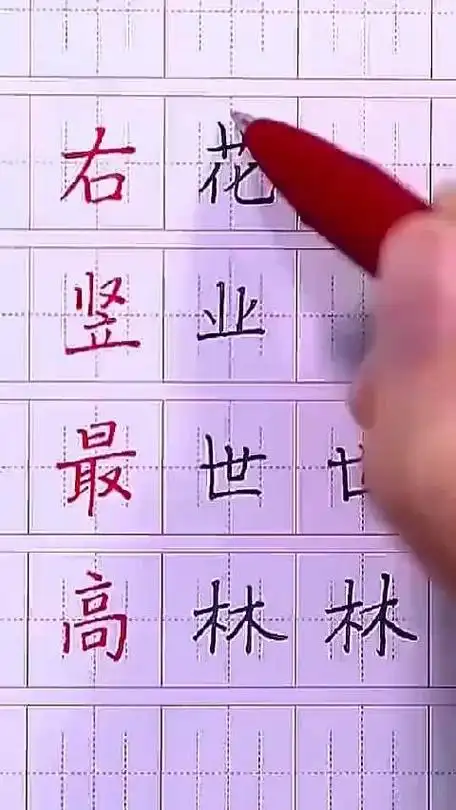 右 花
竖 业
最 世 世
高 林 林